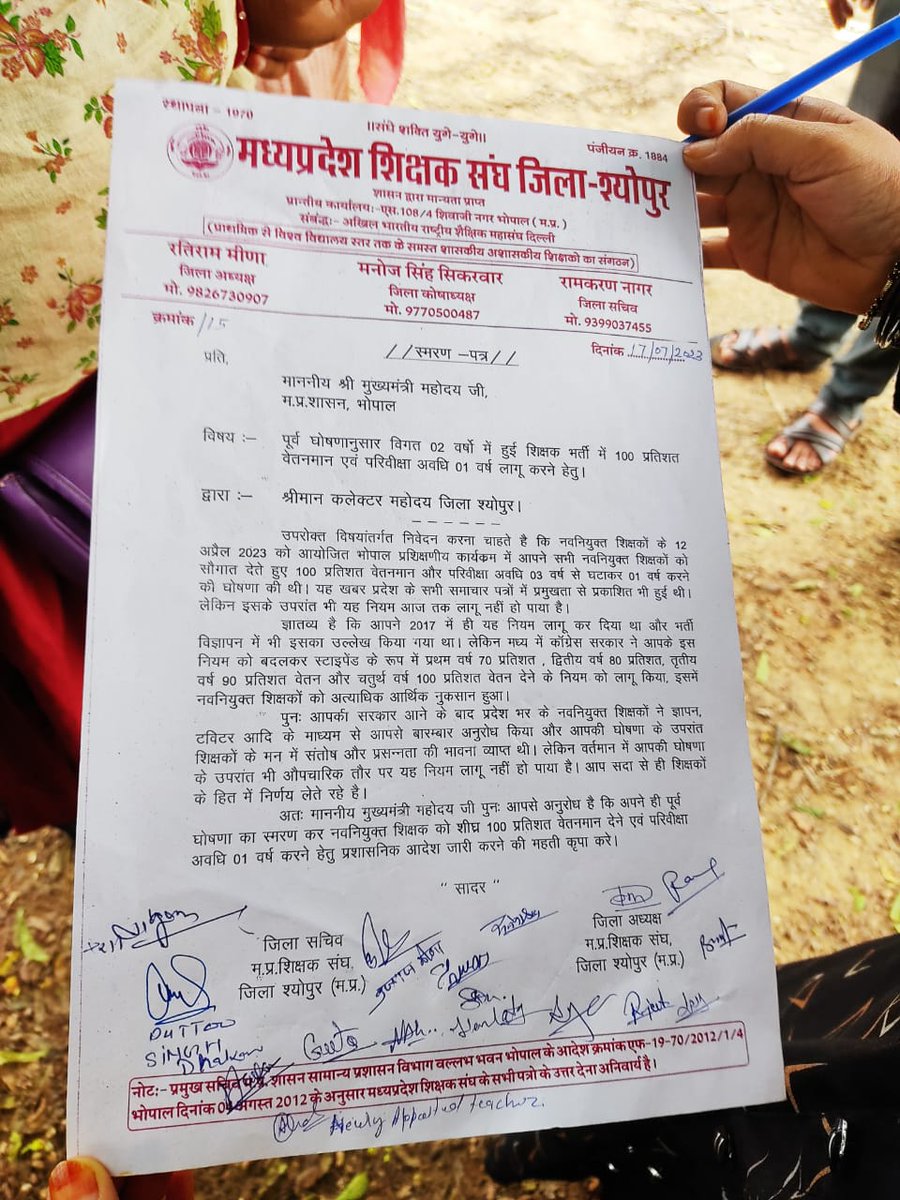 स्थापना - 1970
।।संघे शक्ति युगे-युगे।।
पंजीयन क्र. 1884
मध्यप्रदेश शिक्षक संघ जिला-श्योपुर
शासन द्वारा मान्यता प्राप्त
प्रान्तीय कार्यालय:-एस.108/4 शिवाजी नगर भोपाल (म.प्र.)
संबंद्ध:- अखिल भारतीय राष्ट्रीय शैक्षिक महासंघ दिल्ली
(प्राथमिक से विश्व विद्यालय स्तर तक के समस्त शासकीय अशासकीय शिक्षको का संगठन)
रतिराम मीणा
जिला अध्यक्ष
मो. 9826730907
मनोज सिंह सिकरवार
जिला कोषाध्यक्ष
मो. 9770500487
रामकरण नागर
जिला सचिव
मो. 9399037455
क्रमांक /15
दिनांक 17/07/2023
//स्मरण -पत्र//
प्रति,
माननीय श्री मुख्यमंत्री महोदय जी,
म.प्र.शासन, भोपाल
विषय :- पूर्व घोषणानुसार विगत 02 वर्षो में हुई शिक्षक भर्ती में 100 प्रतिशत
वेतनमान एवं परिवीक्षा अवधि 01 वर्ष लागू करने हेतु।
द्वारा :- श्रीमान कलेक्टर महोदय जिला श्योपुर।
उपरोक्त विषयांतर्गत निवेदन करना चाहते है कि नवनियुक्त शिक्षकों के 12
अप्रैल 2023 को आयोजित भोपाल प्रशिक्षणीय कार्यकम में आपने सभी नवनियुक्त शिक्षकों को
सौगात देते हुए 100 प्रतिशत वेतनमान और परिवीक्षा अवधि 03 वर्ष से घटाकर 01 वर्ष करने
की घोषणा की थी। यह खबर प्रदेश के सभी समाचार पत्रों में प्रमुखता से प्रकाशित भी हुई थी।
लेकिन इसके उपरांत भी यह नियम आज तक लागू नहीं हो पाया है।
ज्ञातव्य है कि आपने 2017 में ही यह नियम लागू कर दिया था और भर्ती
विज्ञापन में भी इसका उल्लेख किया गया था। लेकिन मध्य में कॉंग्रेस सरकार ने आपके इस
नियम को बदलकर स्टाइपेंड के रूप में प्रथम वर्ष 70 प्रतिशत , द्वितीय वर्ष 80 प्रतिशत, तृतीय
वर्ष 90 प्रतिशत वेतन और चतुर्थ वर्ष 100 प्रतिशत वेतन देने के नियम को लागू किया, इसमें
नवनियुक्त शिक्षकों को अत्याधिक आर्थिक नुकसान हुआ।
पुनः आपकी सरकार आने के बाद प्रदेश भर के नवनियुक्त शिक्षकों ने ज्ञापन,
टविटर आदि के माध्यम से आपसे बारम्बार अनुरोध किया और आपकी घोषणा के उपरांत
शिक्षकों के मन में संतोष और प्रसन्नता की भावना व्याप्त थी। लेकिन वर्तमान में आपकी घोषणा
के उपरांत भी औपचारिक तौर पर यह नियम लागू नहीं हो पाया है। आप सदा से ही शिक्षकों
के हित में निर्णय लेते रहे है।
अतः माननीय मुख्यमंत्री महोदय जी पुनः आपसे अनुरोध है कि अपने ही पूर्व
घोषणा का स्मरण कर नवनियुक्त शिक्षक को शीघ्र 100 प्रतिशत वेतनमान देने एवं परिवीक्षा
अवधि 01 वर्ष करने हेतु प्रशासनिक आदेश जारी करने की महती कृपा करे।
" सादर "
जिला सचिव
म.प्र.शिक्षक संघ,
जिला श्योपुर (म.प्र.)
जिला अध्यक्ष
म.प्र.शिक्षक संघ,
जिला श्योपुर (म.प्र.)
SINGH
Geeta
नोट:- प्रमुख सचिव शासन सामान्य प्रशासन विभाग वल्लभ भवन भोपाल के आदेश क्रमांक एफ-19-70/2012/1/4
भोपाल दिनांक अगस्त 2012 के अनुसार मध्यप्रदेश शिक्षक संघ के सभी पत्रो के उत्तर देना अनिवार्य है।
Newly Appointed teacher.